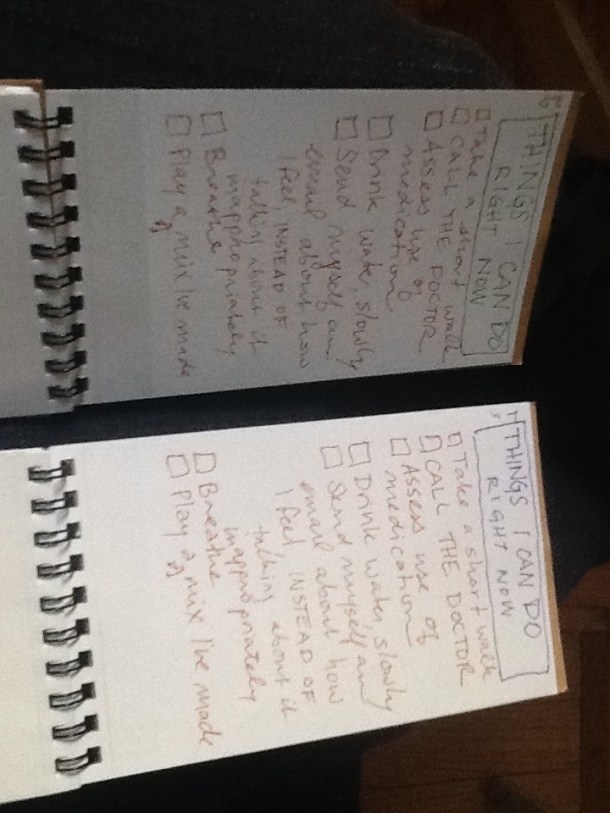 THINGS I CAN DO
RIGHT NOW
Take a short walk
CALL THE DOCTOR
Assess use of
medication
Drink water, slowly
Send myself an
email about how
I feel, INSTEAD OF
talking about it
inappropriately
Breathe
Play a mix I've made
THINGS I CAN DO
RIGHT NOW
Take a short walk
CALL THE DOCTOR
Assess use of
medication
Drink water, slowly
Send myself an
email about how
I feel, INSTEAD OF
talking about it
inappropriately
Breathe
Play a mix I've made